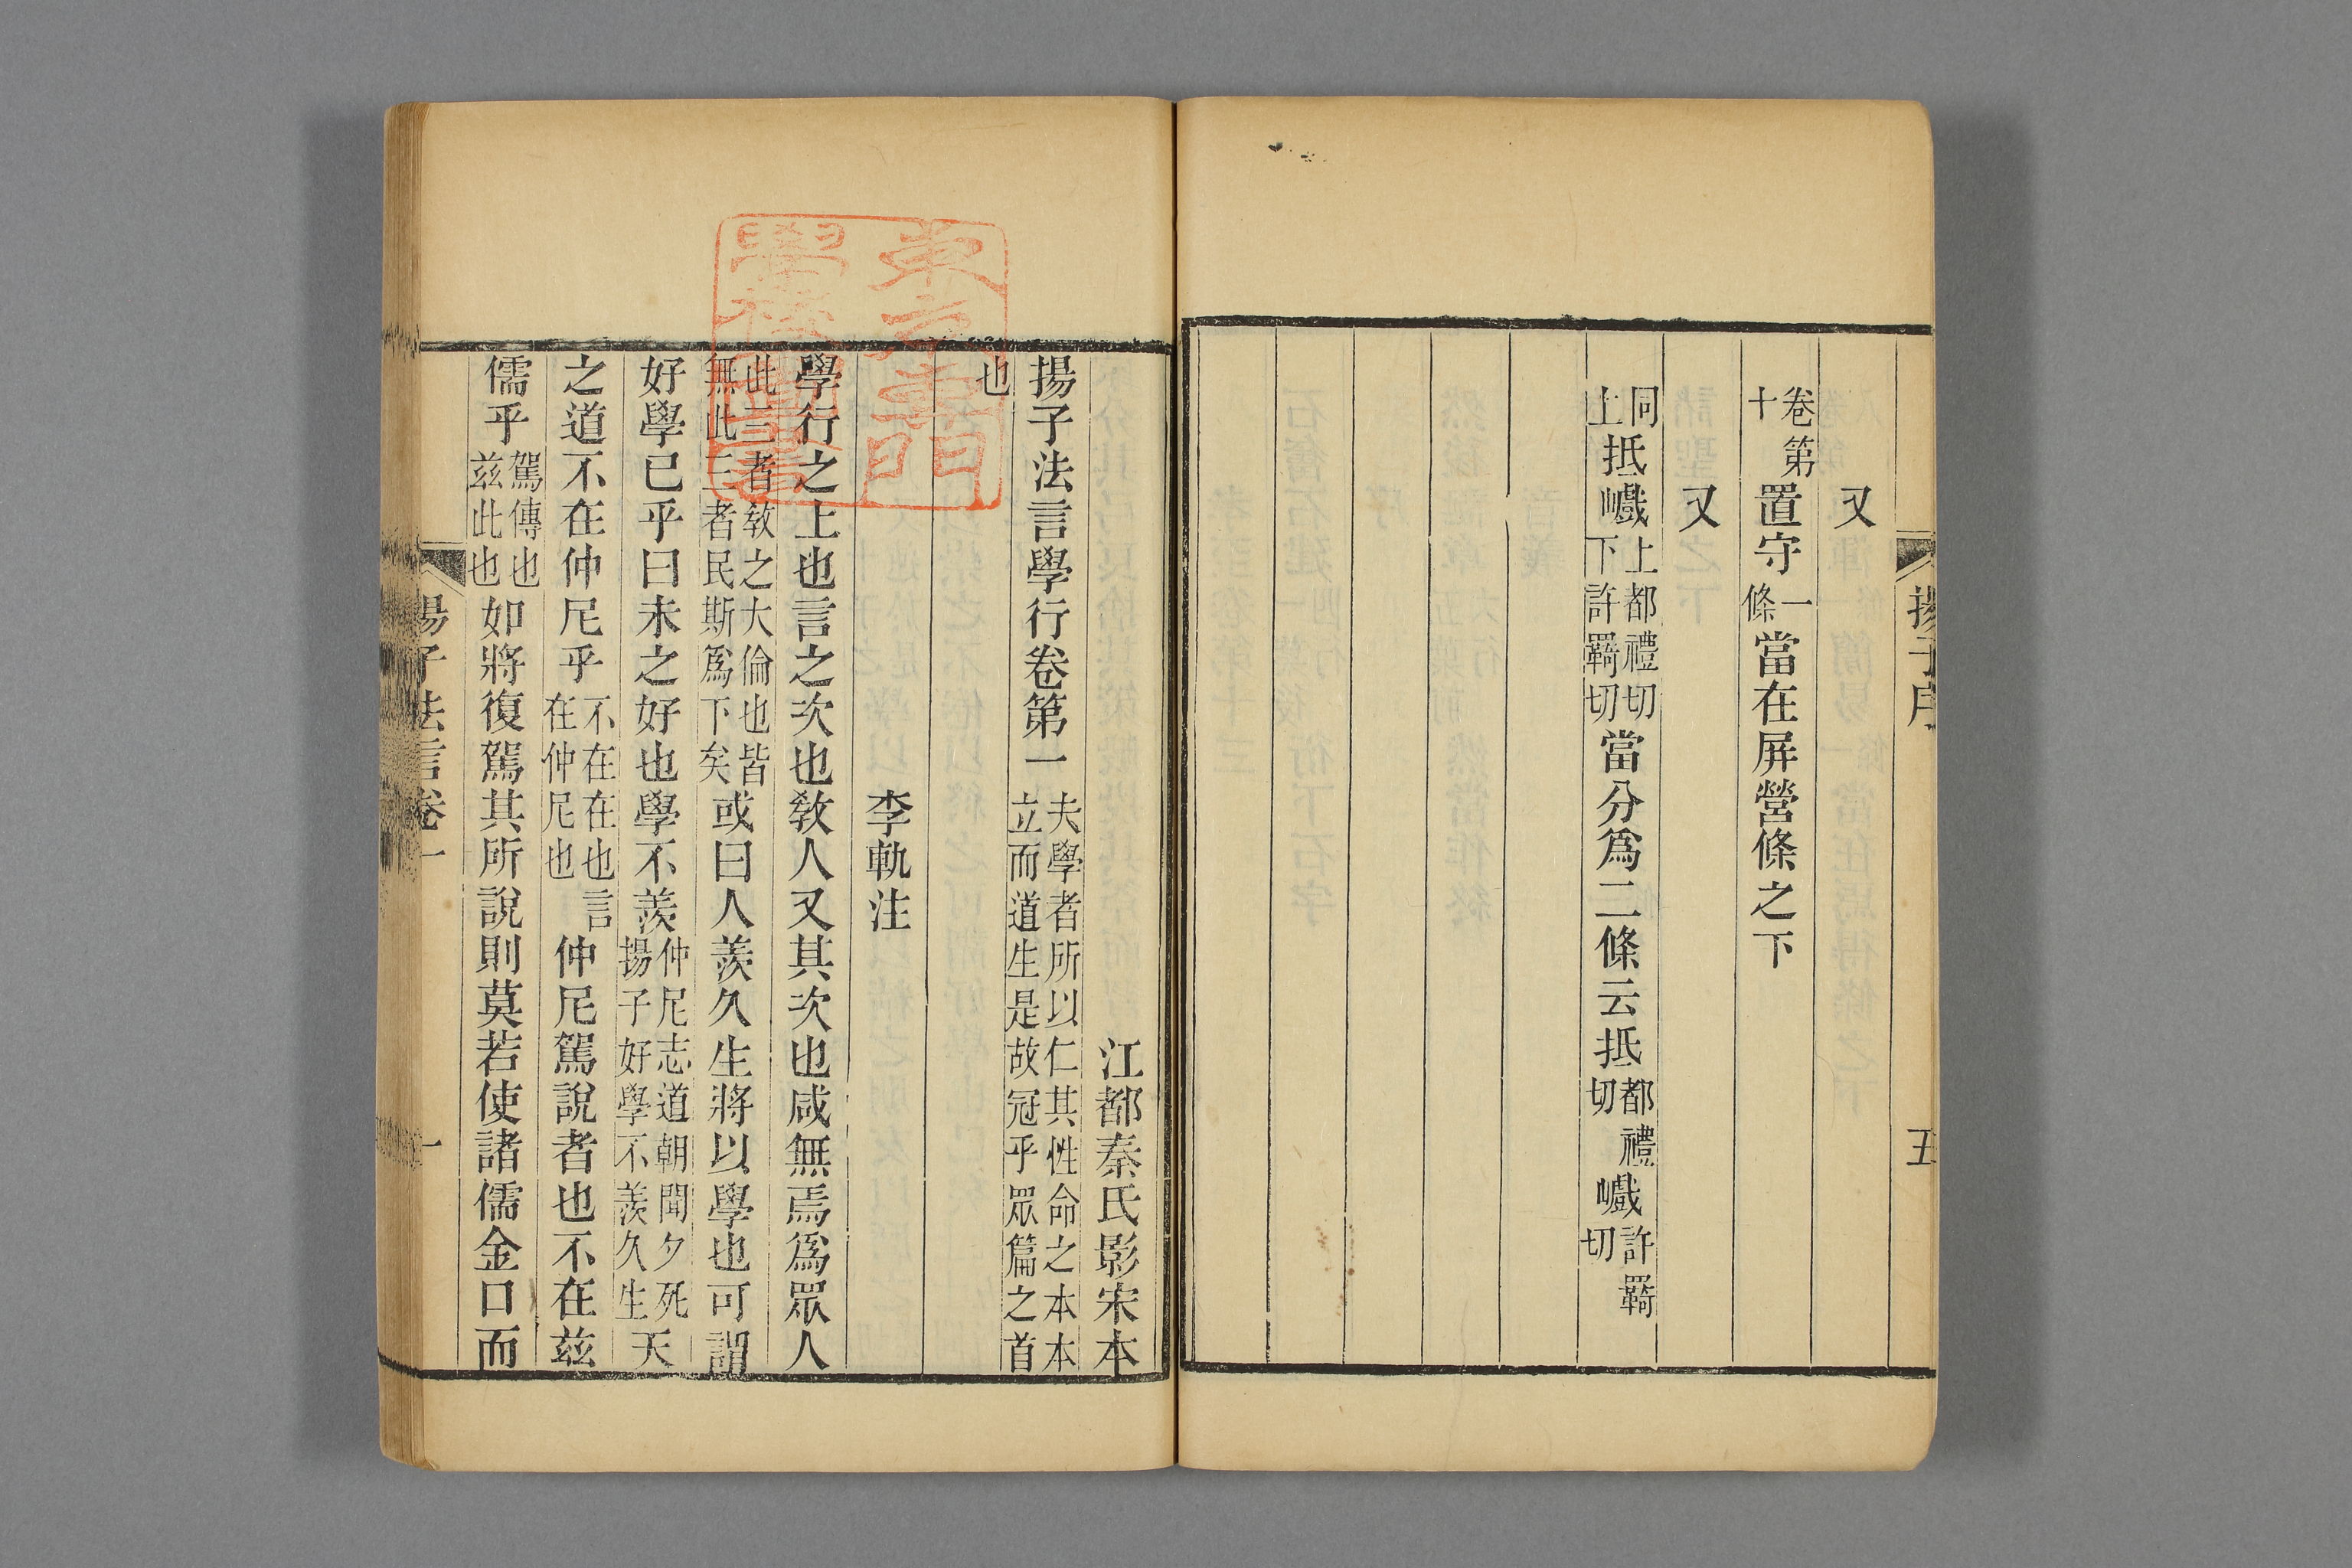 揚子序 五
又
卷第十置守一條當在屏營條之下
又
同上抵巇上都禮切下許羈切當分爲二條云抵都禮切巇許羈切
江都秦氏影宋本
揚子法言學行卷第一夫學者所以仁其性命之本本立而道生是故冠乎眾篇之首
也
李軌注
學行之上也言之次也敎人又其次也咸無焉爲眾人
此三者敎之大倫也皆無此三者民斯爲下矣或曰人羨久生將以學也可謂
好學已乎曰未之好也學不羨仲尼志道朝聞夕死揚子好學不羨久生天
之道不在仲尼乎不在在也言在仲尼也仲尼駕說者也不在茲
儒乎駕傳也茲此也如將復駕其所說則莫若使諸儒金口而
揚子法言卷一 一